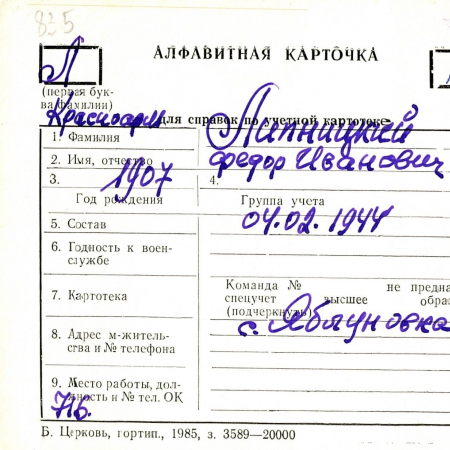 835
АЛФАВИТНАЯ КАРТОЧКА
Л
(первая бук-
ва фамилии)
Красноарм для справок по учетной картотеке
1. Фамилия Липницкий
2. Имя, отчество Федор Иванович
3. 1907 4.
Год рождения Группа учета
5. Состав 04.02.1944
6. Годность к воен-
службе
Команда № не предна
7. Картотека спецучет высшее образ
(подчеркнуть)
8. Адрес м-житель- с. Яблуновка
ства и № телефона
9. Место работы, дол-
жность и № тел. ОК
716.
Б. Церковь, гортип., 1985, з. 3589—20000